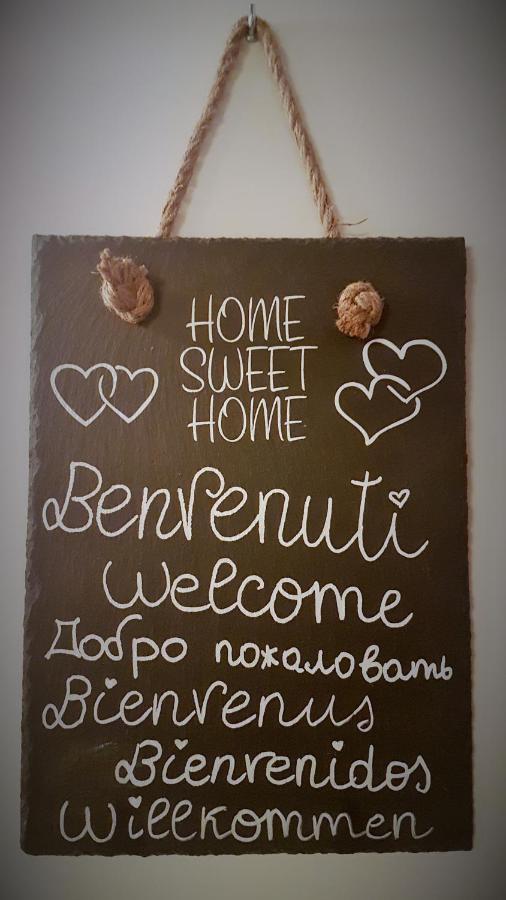 HOME
SWEET
HOME
Benvenuti
Welcome
Добро пожаловать
Bienvenus
Bienvenidos
Willkommen